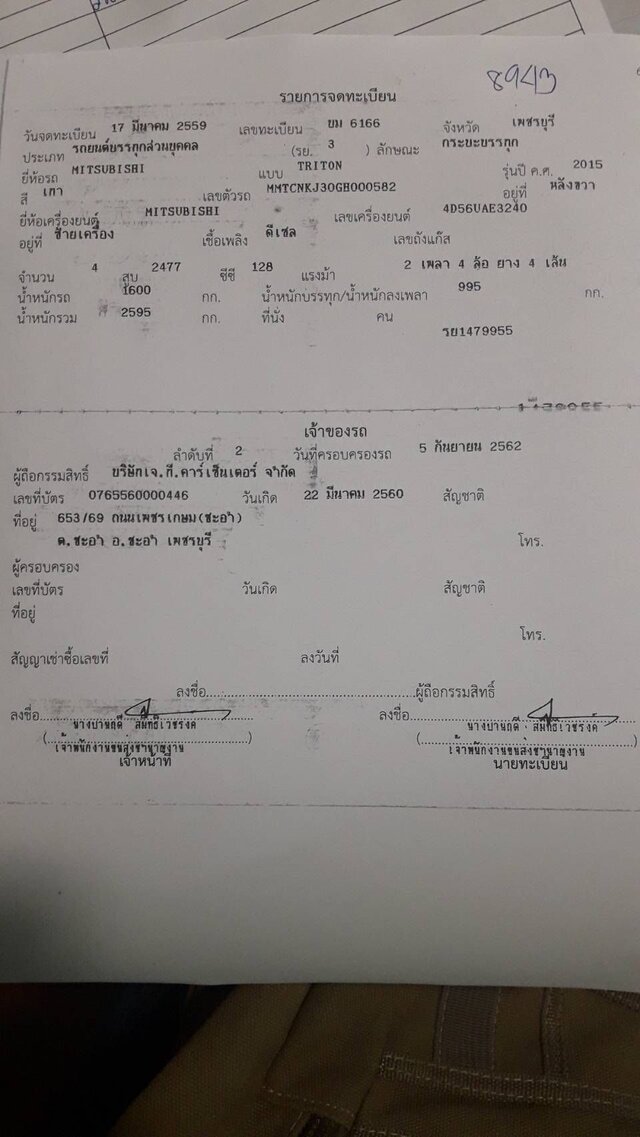 8943
รายการจดทะเบียน
วันจดทะเบียน 17 มีนาคม 2559 เลขทะเบียน ขม 6166 จังหวัด เพชรบุรี
ประเภท รถยนต์บรรทุกส่วนบุคคล (รย. 3 ) ลักษณะ กระบะบรรทุก
ยี่ห้อรถ MITSUBISHI แบบ TRITON รุ่นปี ค.ศ. 2015
สี เทา เลขตัวรถ MMTCNKJ30GH000582 อยู่ที่ หลังขวา
ยี่ห้อเครื่องยนต์ MITSUBISHI เลขเครื่องยนต์ 4D56UAE3240
อยู่ที่ ซ้ายเครื่อง เชื้อเพลิง ดีเซล เลขถังแก๊ส
จำนวน 4 สูบ 2477 ซีซี 128 แรงม้า 2 เพลา 4 ล้อ ยาง 4 เส้น
น้ำหนักรถ 1600 กก. น้ำหนักบรรทุก/น้ำหนักลงเพลา 995 กก.
น้ำหนักรวม 2595 กก. ที่นั่ง คน
รย1479955
เจ้าของรถ
ลำดับที่ 2 วันที่ครอบครองรถ 5 กันยายน 2562
ผู้ถือกรรมสิทธิ์ บริษัทเจ.ที.คาร์เซ็นเตอร์ จำกัด
เลขที่บัตร 0765560000446 วันเกิด 22 มีนาคม 2560 สัญชาติ
ที่อยู่ 653/69 ถนนเพชรเกษม(ชะอำ)
ต.ชะอำ อ.ชะอำ เพชรบุรี โทร.
ผู้ครอบครอง
เลขที่บัตร วันเกิด สัญชาติ
ที่อยู่
โทร.
สัญญาเช่าซื้อเลขที่ ลงวันที่
ลงชื่อ ผู้ถือกรรมสิทธิ์
ลงชื่อ ลงชื่อ
เจ้าพนักงานขนส่งชำนาญงาน เจ้าพนักงานขนส่งชำนาญงาน
เจ้าหน้าที่ นายทะเบียน